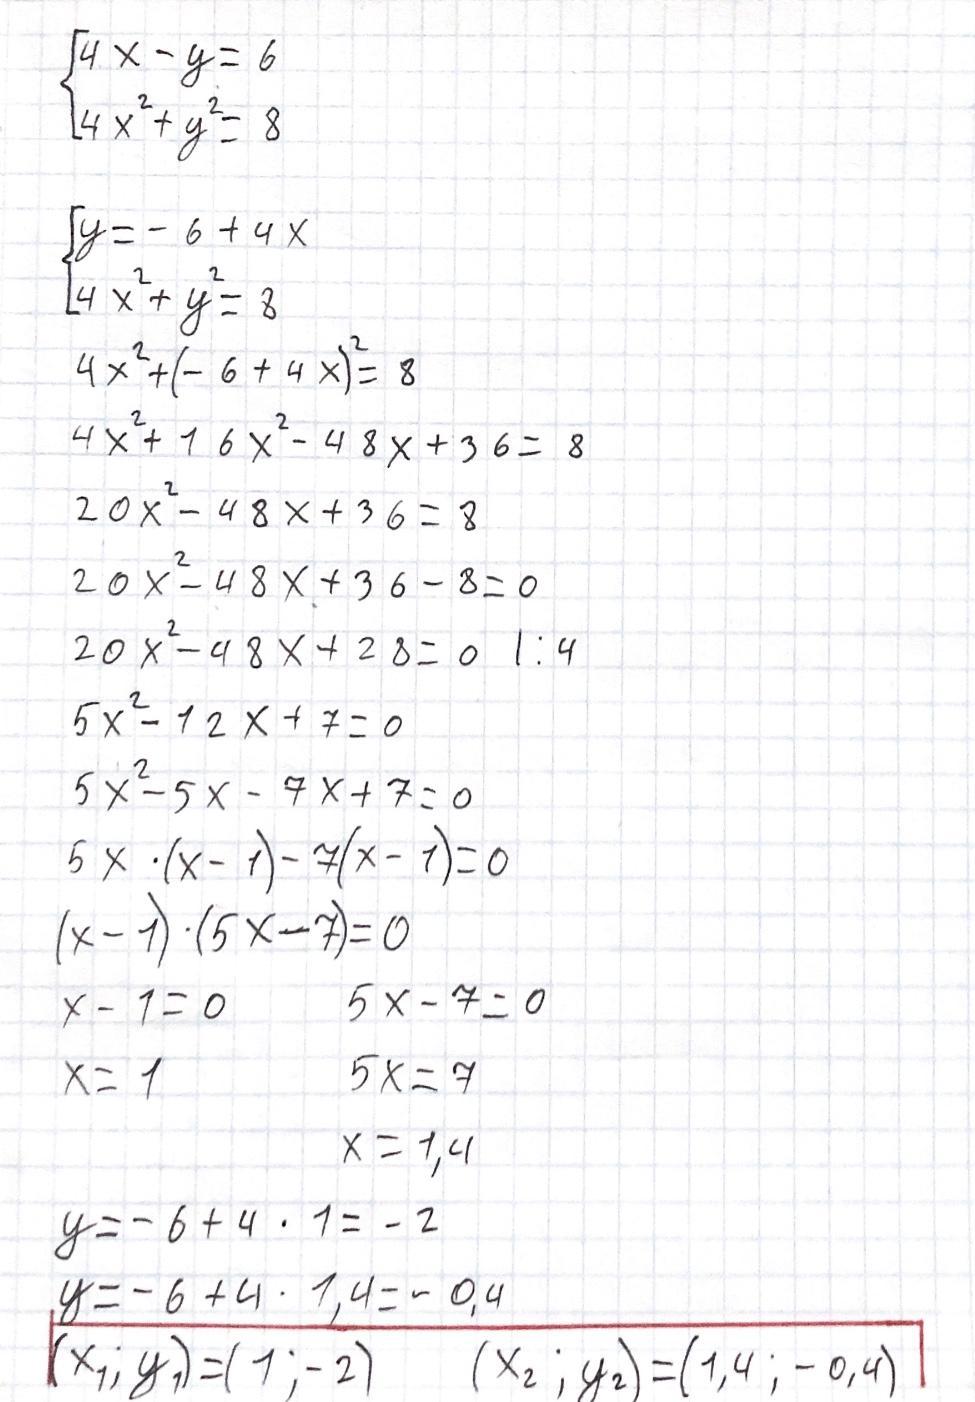 {4x - y = 6
4x² + y² = 8
{y = - 6 + 4x
4x² + y² = 8
4x² + (- 6 + 4x)² = 8
4x² + 16x² - 48x + 36 = 8
20x² - 48x + 36 = 8
20x² - 48x + 36 - 8 = 0
20x² - 48x + 28 = 0 |:4
5x² - 12x + 7 = 0
5x² - 5x - 7x + 7 = 0
5x · (x - 1) - 7(x - 1) = 0
(x - 1) · (5x - 7) = 0
x - 1 = 0 5x - 7 = 0
x = 1 5x = 7
x = 1,4
y = - 6 + 4 · 1 = - 2
y = - 6 + 4 · 1,4 = - 0,4
(x₁; y₁) = (1; -2) (x₂; y₂) = (1,4; -0,4)